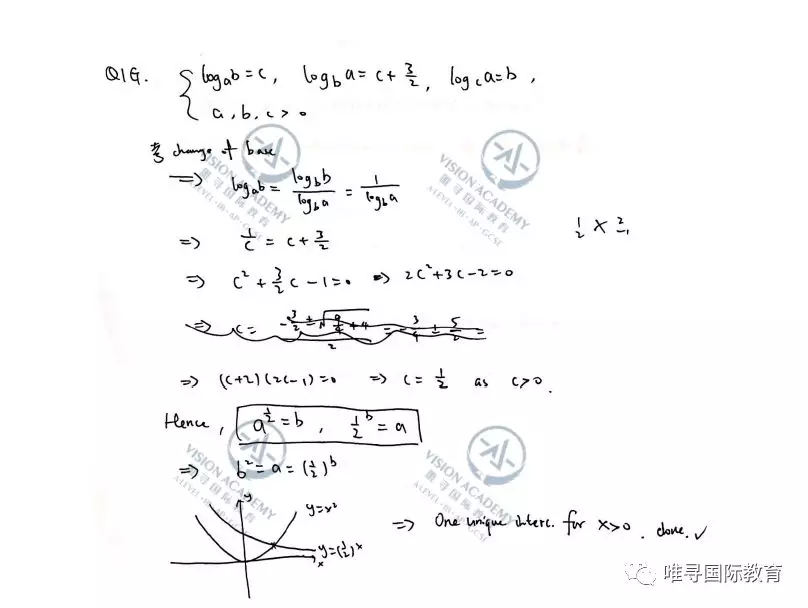 Q1G. { logₐb = c, log_b a = c + 3/2, log_c a = b,
a, b, c > 0
change of base
⟹ logₐb = log_b b / log_b a = 1 / log_b a
⟹ 1/c = c + 3/2
1/2 × 2/-1
⟹ c² + 3/2 c - 1 = 0 ⟹ 2c² + 3c - 2 = 0
⟹ (c+2)(2c-1) = 0 ⟹ c = 1/2 as c > 0.
Hence, a^(1/2) = b, 1/2^b = a
⟹ b² = a = (1/2)^b
y
y = x²
y = (1/2)^x
x
⟹ One unique interc. for x > 0. done. ✓
VISION ACADEMY
唯寻国际教育
A-LEVEL·IB·AP·GCSE
VISION ACADEMY
唯寻国际教育
A-LEVEL·IB·AP·GCSE
VISION ACADEMY
唯寻国际教育
A-LEVEL·IB·AP·GCSE
VISION ACADEMY
唯寻国际教育
A-LEVEL·IB·AP·GCSE
唯寻国际教育